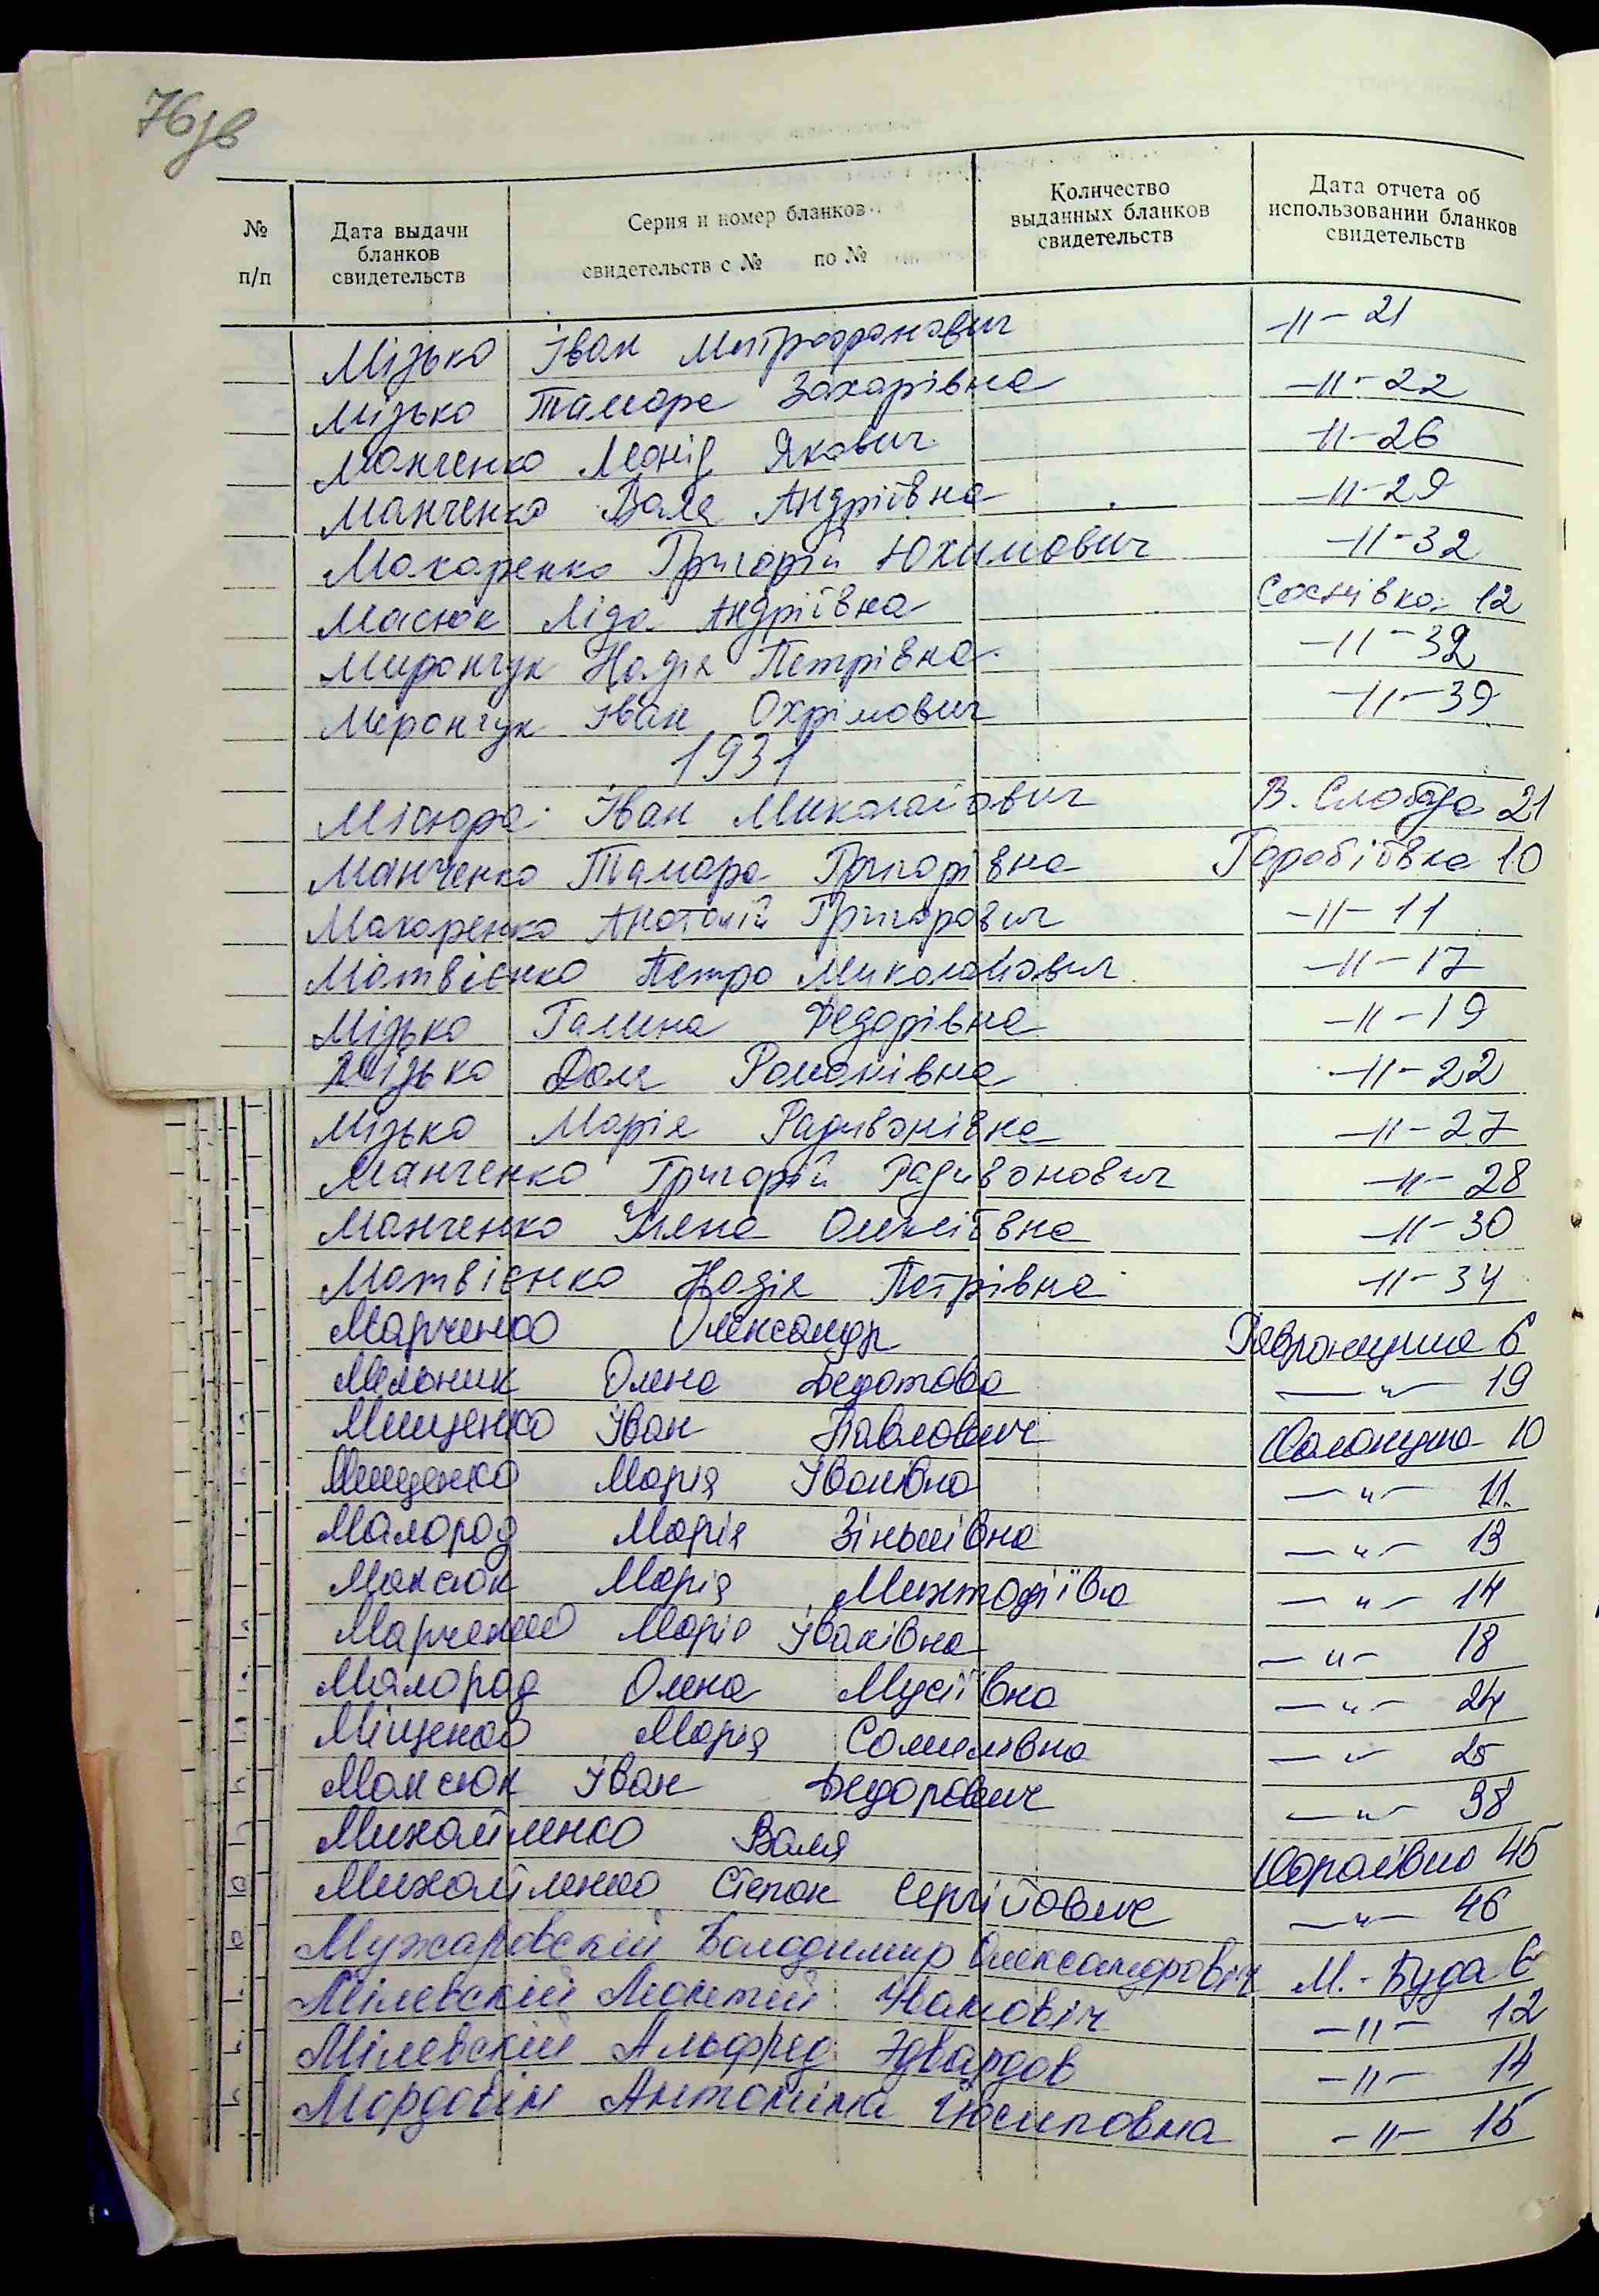 76зв
№ п/п
Дата выдачи бланков свидетельств
Серия и номер бланков свидетельств с № по №
Количество выданных бланков свидетельств
Дата отчета об использовании бланков свидетельств
Мізько Іван Митрофанович -//- 21
Мізько Тамара Захарівна -//- 22
Манченко Леонід Якович -//- 26
Манченко Валя Андріївна -//- 29
Макаренко Григорій Юхимович -//- 32
Масюк Ліда Андріївна Сахнівка 12
Мирончук Надія Петрівна -//- 32
Мерончук Іван Охрімович -//- 39
1931
Місюра Іван Миколайович В. Слобода 21
Манченко Тамара Григорівна Горобіївка 10
Макаренко Анатолій Григорович -//- 11
Матвієнко Петро Миколайович -//- 17
Мізько Галина Федорівна -//- 19
Мізько Доля Романівна -//- 22
Мізько Марія Радивонівна -//- 27
Манченко Григорій Радивонович -//- 28
Манченко Уляна Олексіївна -//- 30
Матвієнко Надія Петрівна -//- 34
Марченко Олександр Гавронщина 6
Мельник Олена Федотовна — " — 19
Мищенко Іван Павлович 10
Мищенко Марія Іванівна — " — 11
Малород Марія Зіньківна — " — 13
Максюк Марія Митодіївна — " — 14
Марченко Марія Іванівна — " — 18
Малород Олена Мусіївна — " — 24
Міщенко Марія Самилівна — " — 25
Максюк Іван Федорович — " — 38
Михайленко Валя Юрівка 45
Михайленко Степан Сергійович — " — 46
Мужаровскій Володимир Олександровіч М.-Буда 6
Мілевскій Леонтій Івановіч -//- 12
Мілевскій Альфред Эдвардов -//- 14
Мордобін Антоніна Йосиповна -//- 15